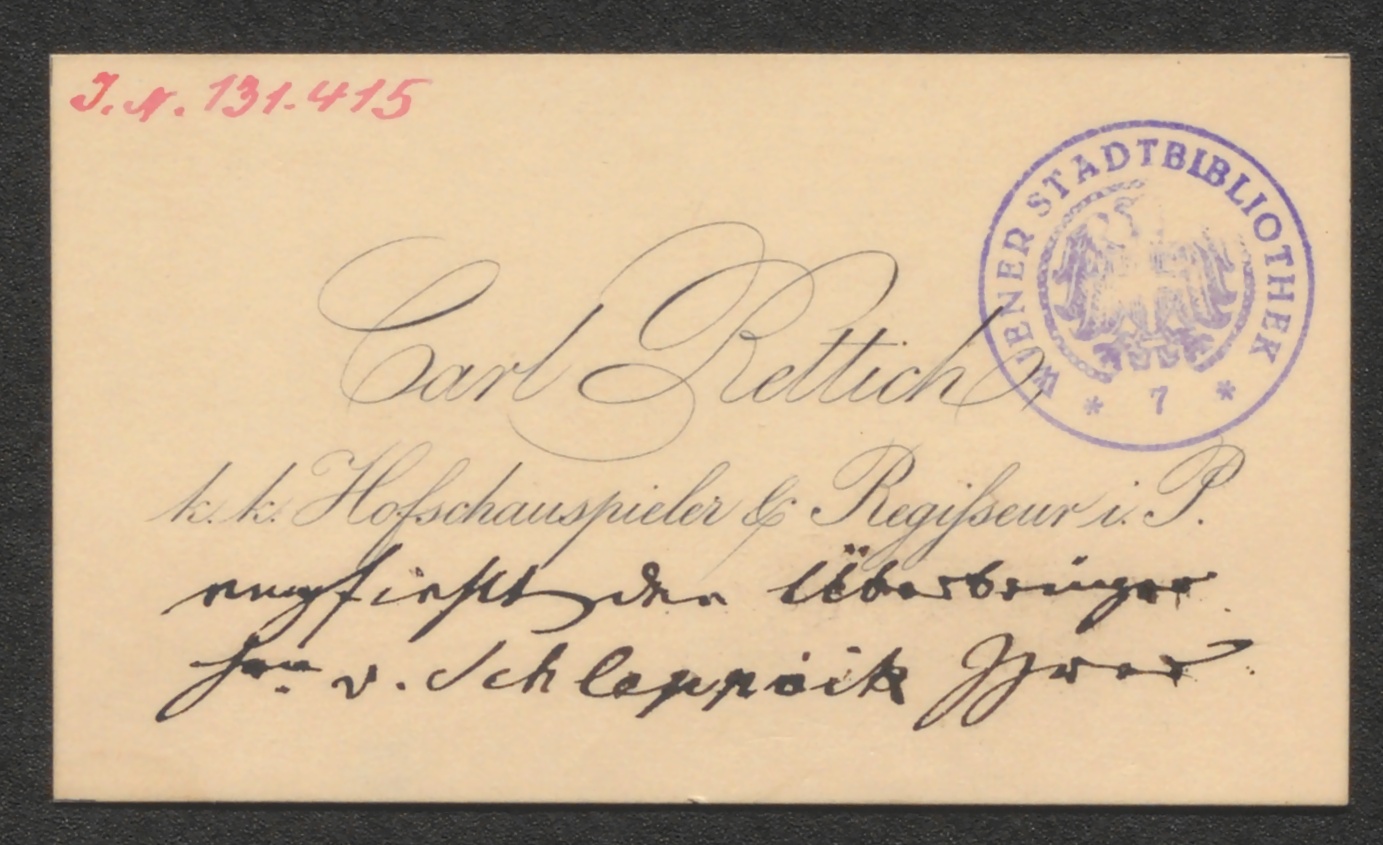 J. N. 131.415
WIENER STADTBIBLIOTHEK
* 7 *
Carl Rettich
k. k. Hofschauspieler & Regißeur i. P.
empfiehlt den Überbringer
Hrn v. Schleppnik Ihrer